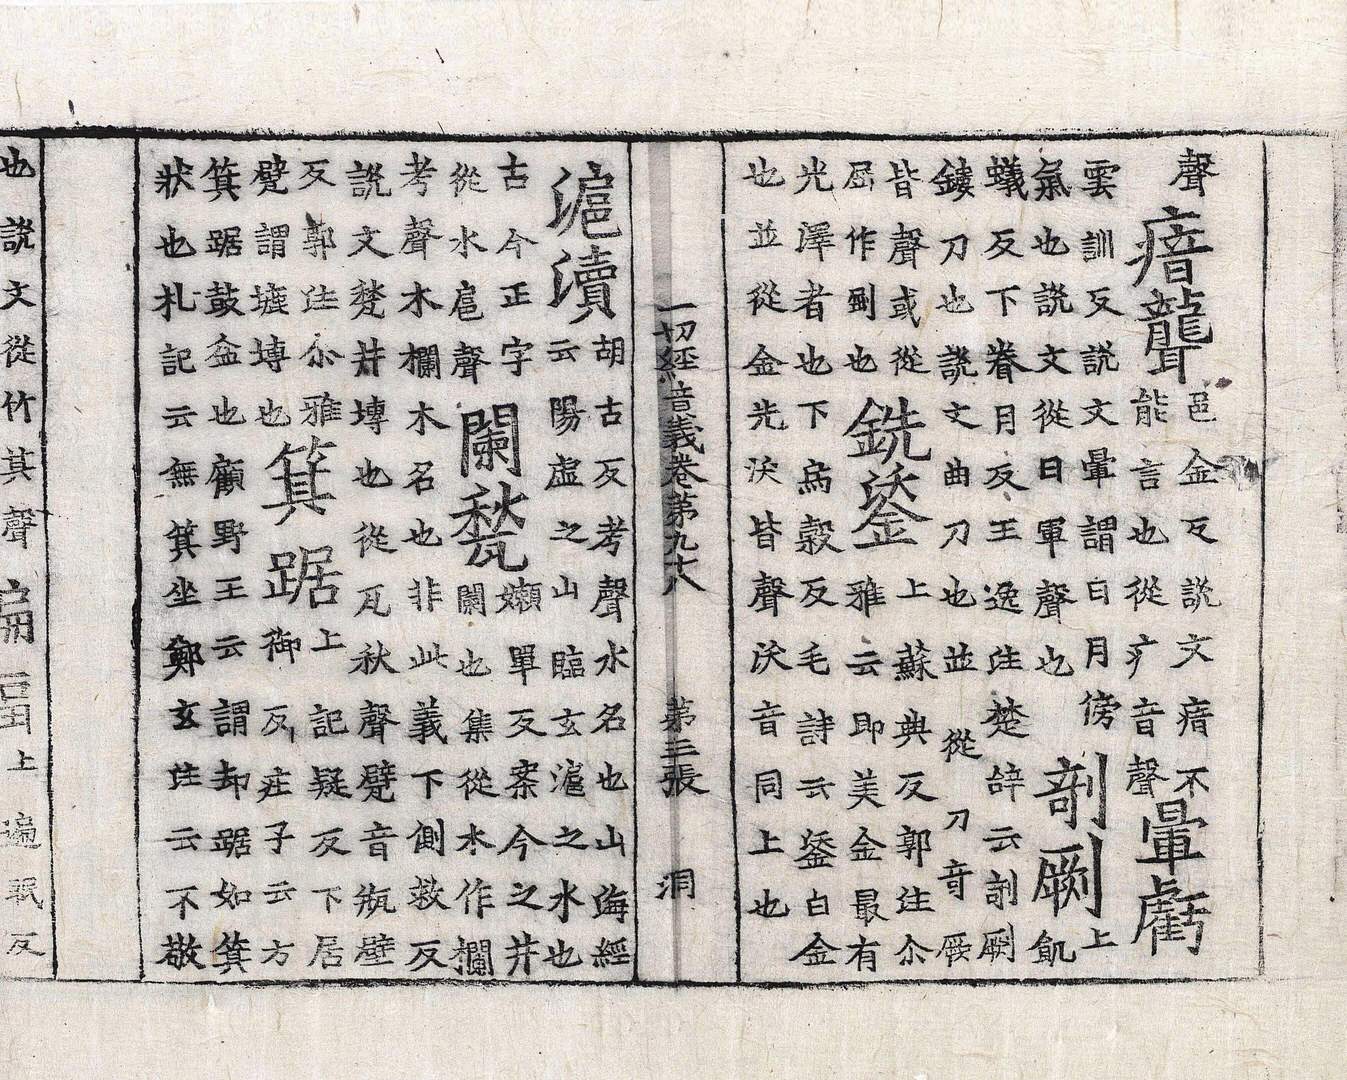 聲
瘖聾
邑金反說文瘖不
能言也從疒音聲
暈虧
雲訓反說文暈謂日月傍
氣也說文從日軍聲也
剞劂
上
飢
蟻反下眷月反王逸注楚辭云剞劂
鏤刀也說文曲刀也並從刀奇厥
皆聲或從
屈作也
銑鋈
上蘇典反郭注尒
雅云即美金最有
光澤者也下烏穀反毛詩云鋈白金
也並從金光沃皆聲沃音同上也
一切經音義卷第九十八 第三張 洞
滬瀆
胡古反考聲水名也山海經
云陽虛之山臨玄滬之水也
古今正字
從水扈聲
闌甃
嬾單反案今之井
闌也集從木作欄
考聲木欄木名也非此義下側救反
說文甃井塼也從瓦秋聲甓音瓶壁
反郭注尒雅
甓謂塼也
箕踞
上記疑反下居
御反庄子云方
箕踞鼓盆也顧野王云謂却踞如箕
狀也礼記云無箕坐鄭玄注云不敬
也說文從竹其聲
上遍珉反